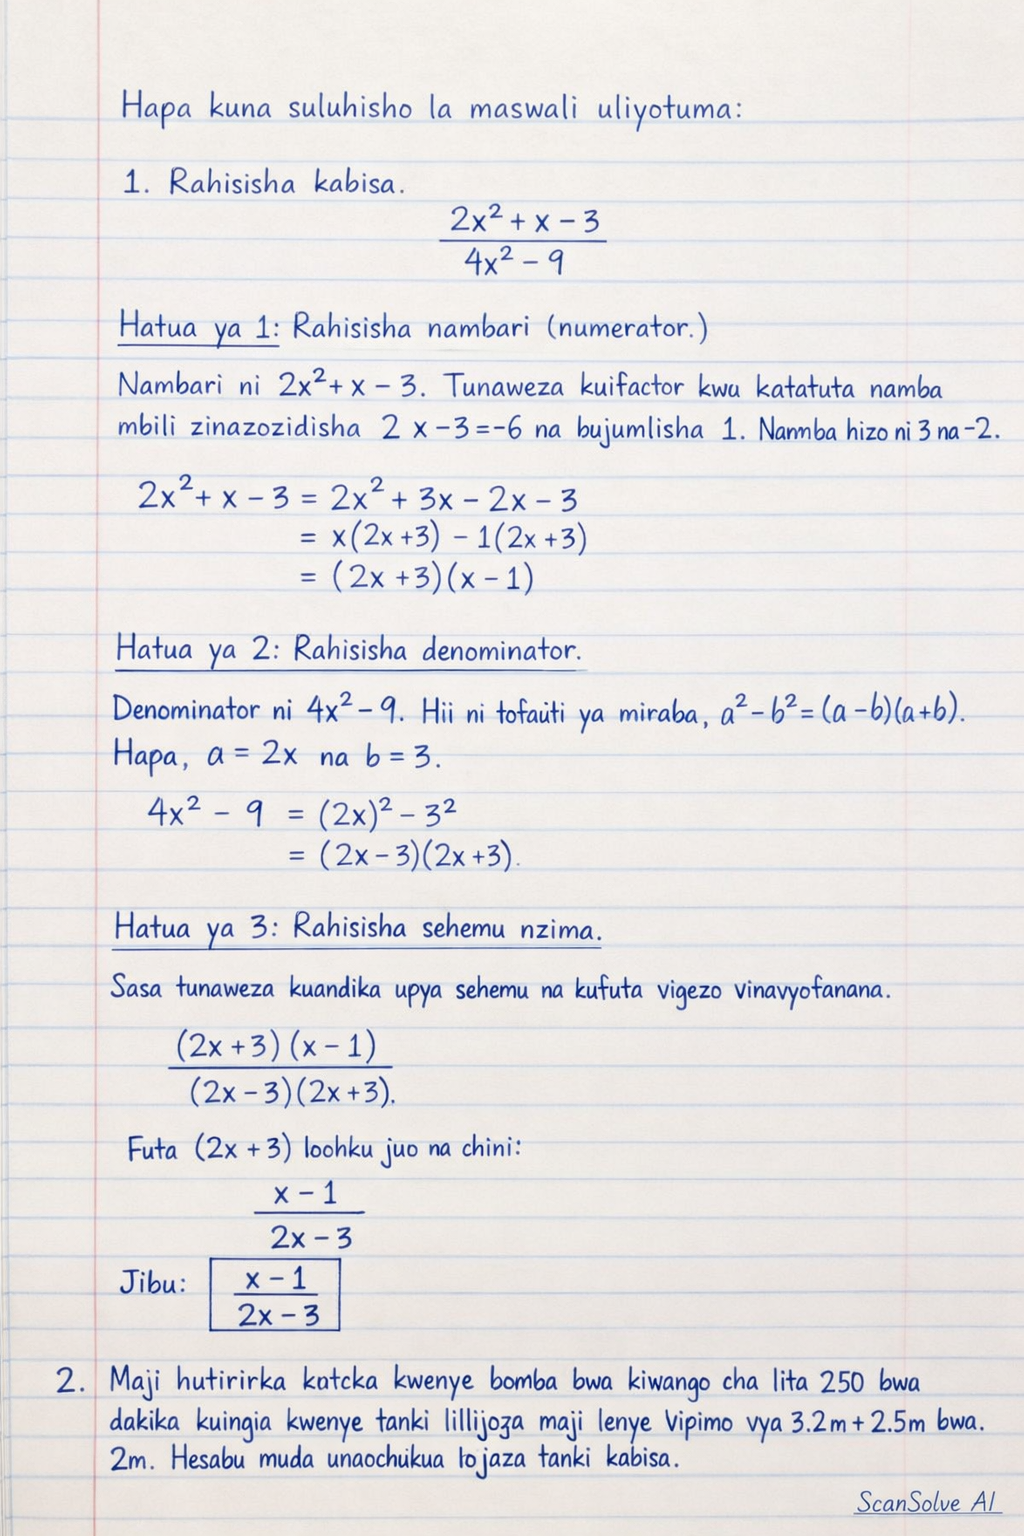 Hapa kuna suluhisho la maswali uliyotuma:
1. Rahisisha kabisa.
2x² + x - 3
4x² - 9
Hatua ya 1: Rahisisha nambari (numerator.)
Nambari ni 2x² + x - 3. Tunaweza kuifactor kwu katatuta namba
mbili zinazozidisha 2 x -3 = -6 na bujumlisha 1. Nanmba hizo ni 3 na -2.
2x² + x - 3 = 2x² + 3x - 2x - 3
= x(2x + 3) - 1(2x + 3)
= (2x + 3)(x - 1)
Hatua ya 2: Rahisisha denominator.
Denominator ni 4x² - 9. Hii ni tofaúti ya miraba, a² - b² = (a - b)(a + b).
Hapa, a = 2x na b = 3.
4x² - 9 = (2x)² - 3²
= (2x - 3)(2x + 3).
Hatua ya 3: Rahisisha sehemu nzima.
Sasa tunaweza kuandika upya sehemu na kufuta vigezo vinavyofanana.
(2x + 3)(x - 1)
(2x - 3)(2x + 3).
Futa (2x + 3) loohku juo na chini:
x - 1
2x - 3
Jibu: x - 1
2x - 3
2. Maji hutirirka katcka kwenye bomba bwa kiwango cha lita 250 bwa
dakika kuingia kwenye tanki lillijoza maji lenye Vipimo vya 3.2m + 2.5m bwa.
2m. Hesabu muda unaochukua lojaza tanki kabisa.
ScanSolve AI